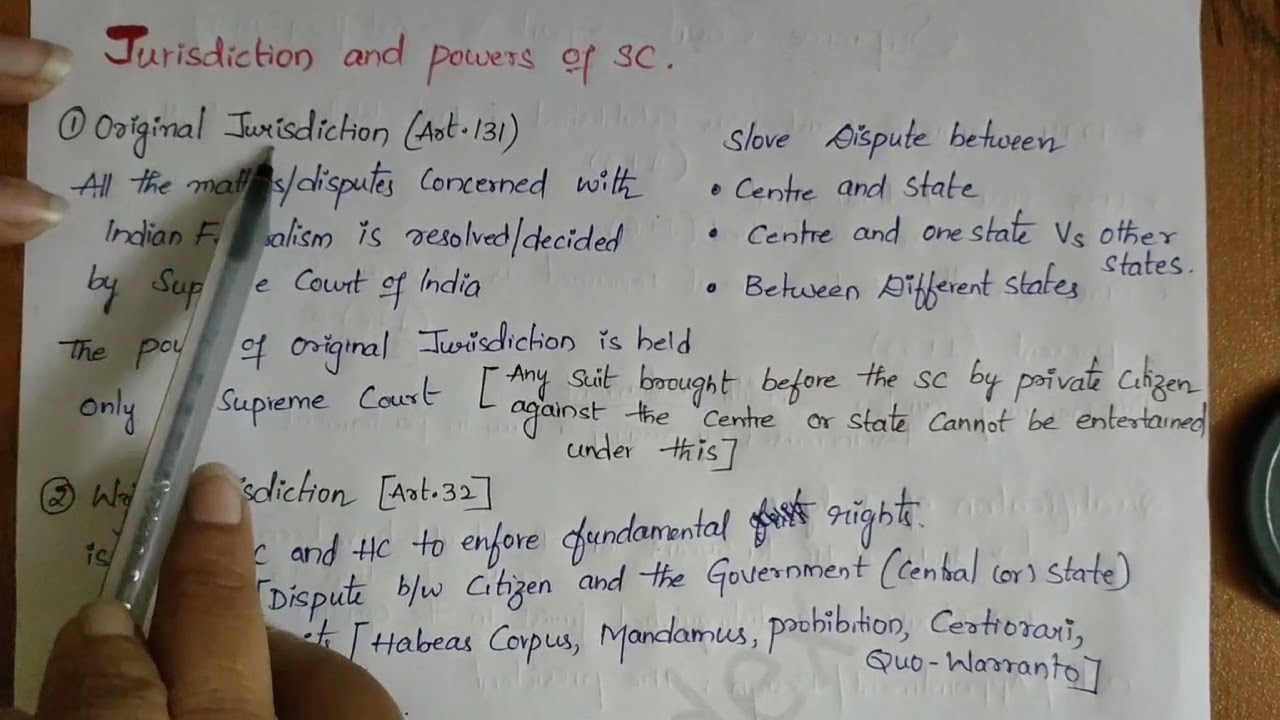 Jurisdiction and powers of SC.
① Original Jurisdiction (Art.131)
All the /disputes concerned with
Indian is resolved/decided
by Court of India
The of original Jurisdiction is held
only Supreme Court [Any suit brought before the SC by private citizen
against the centre or state cannot be entertained
under this]
Slove Dispute between
• Centre and state
• Centre and one state Vs other
states.
• Between Different states
② [Art.32]
is and HC to enfore fundamental rights.
[Dispute b/w citizen and the Government (central (or) state)
[Habeas Corpus, Mandamus, prohibition, Certiorari,
Quo-Warranto]